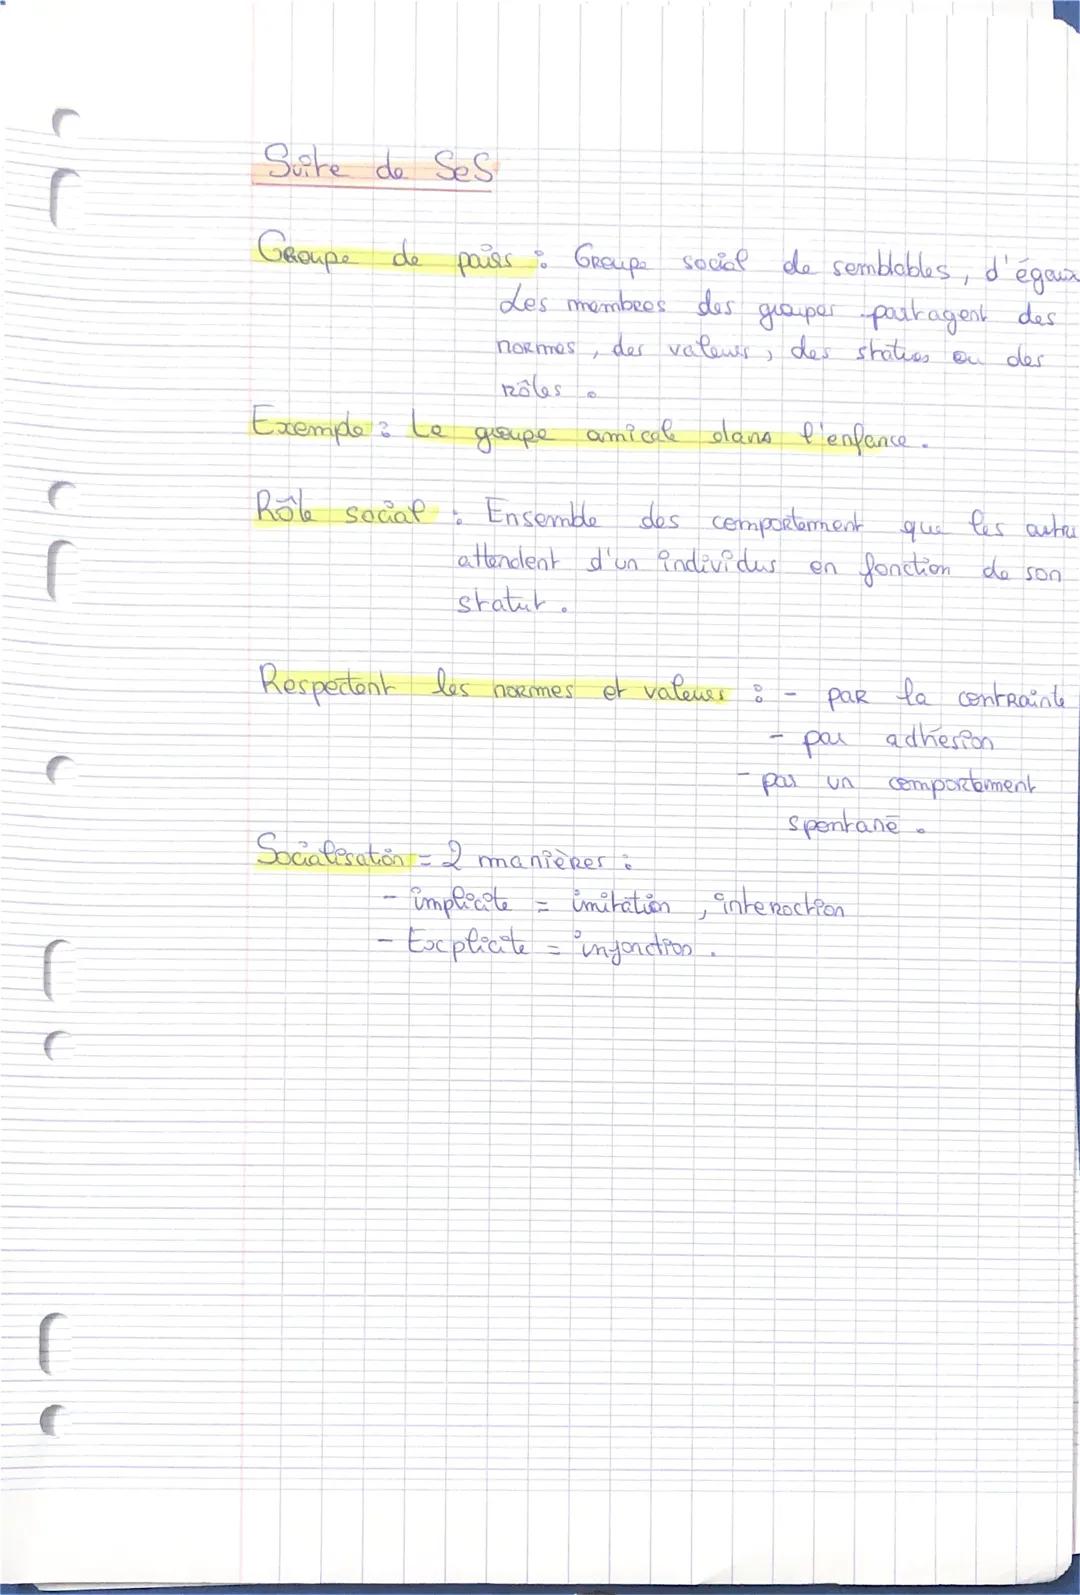 Suite de SeS
Groupe de pairs : Groupe social de semblables, d'égaux
Les membres des groupes partagent des
normes, des valeurs, des statuts ou des
rôles.
Exemple : Le groupe amicale dans l'enfance.
Rôle social : Ensemble des comportement que les autres
attendent d'un individus en fonction de son
statut.
Respectent les normes et valeurs : - par la contrainte
- par adhésion
- par un comportement
spontané.
Socialisation = 2 manières :
- implicite = imitation, interaction
- Explicite = injonction.